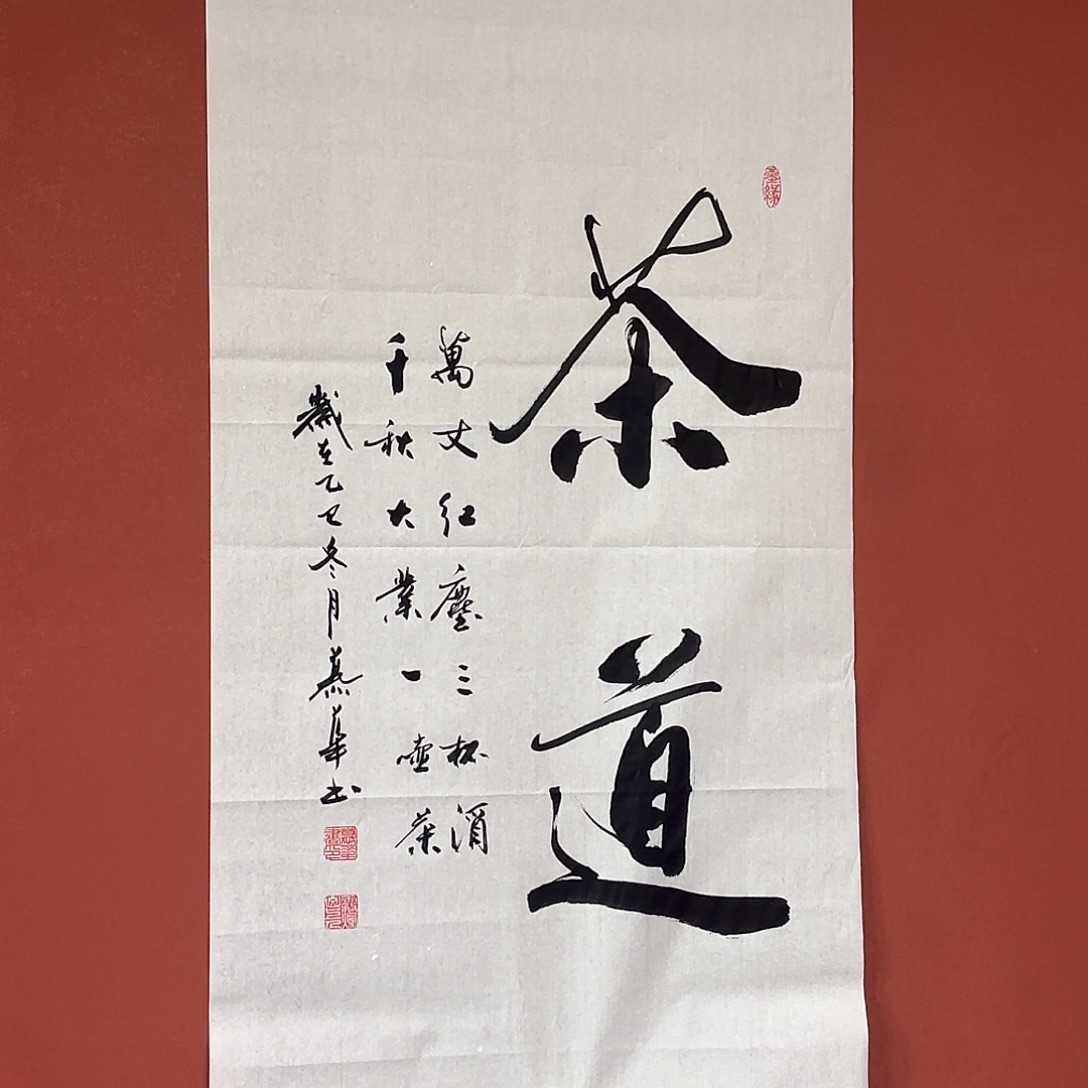 茶道
萬丈红塵三杯酒
千秋大業一壷茶
歲在乙巳冬月慕華书